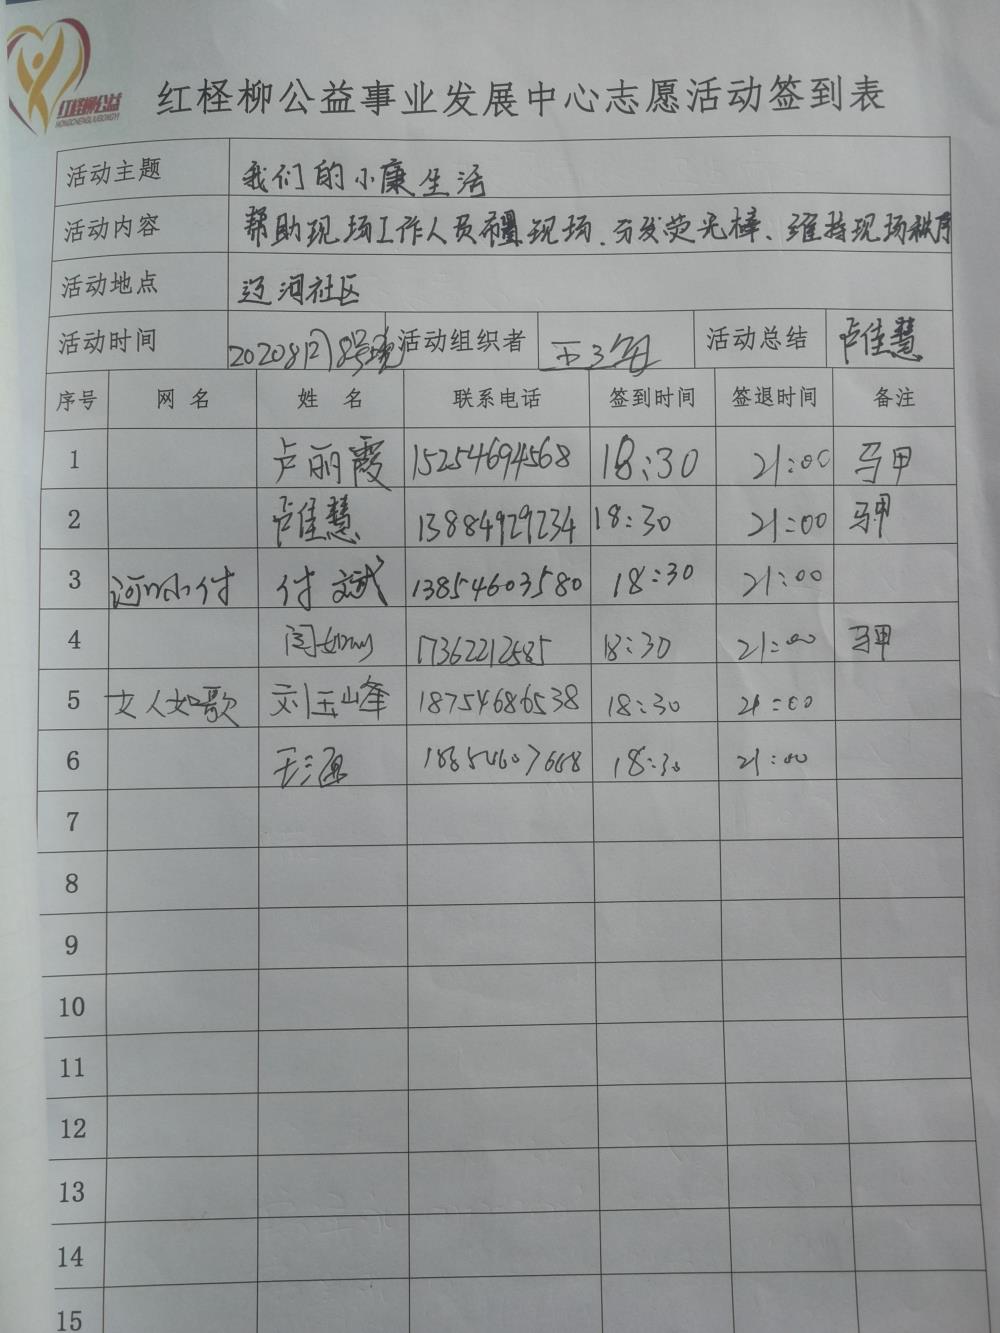 红柽柳公益
HONGCHENGLIUGONGYI
红柽柳公益事业发展中心志愿活动签到表
活动主题 我们的小康生活
活动内容 帮助现场工作人员布置现场、分发荧光棒、维持现场秩序
活动地点 迈河社区
活动时间 活动组织者 活动总结 卢佳慧
序号 网名 姓名 联系电话 签到时间 签退时间 备注
1 卢丽霞 15254694568 18:30 21:00 马甲
2 卢佳慧 13884929234 18:30 21:00 马甲
3 付文斌 13854603580 18:30 21:00
4 17362212585 18:30 21:00 马甲
5 女人如歌 刘玉峰 18754686538 18:30 21:00
6 18:30 21:00
7
8
9
10
11
12
13
14
15